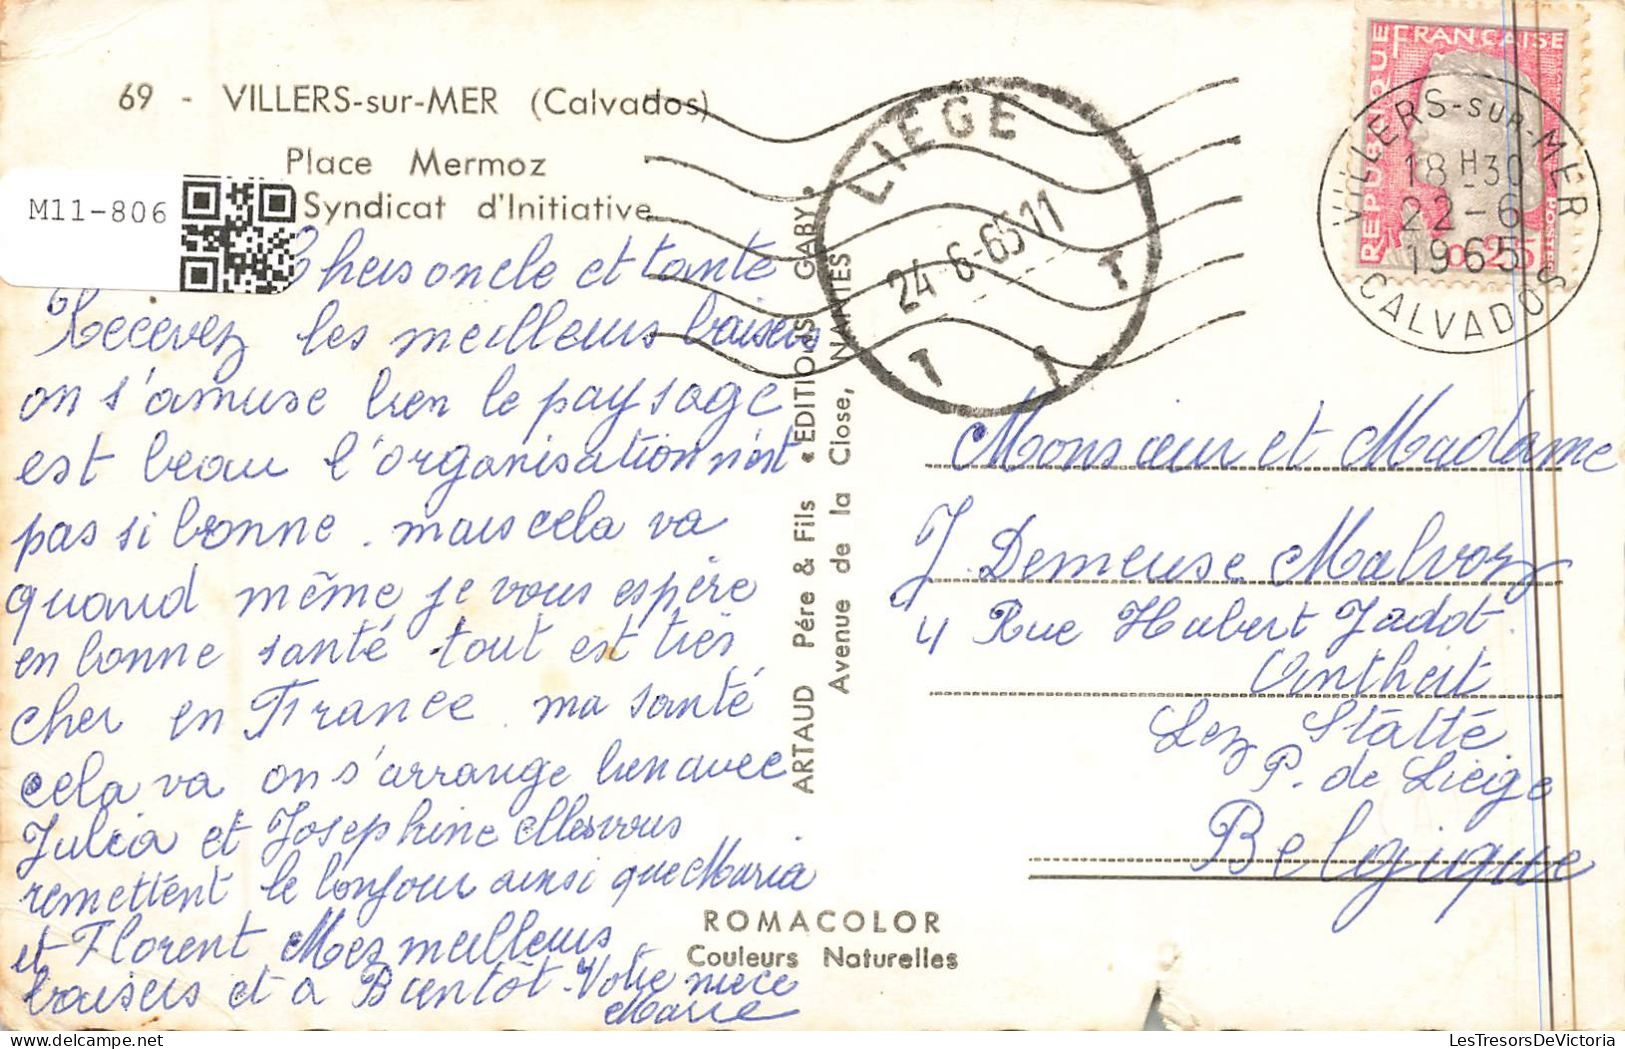 69 - VILLERS-sur-MER (Calvados)
Place Mermoz
Syndicat d'Initiative
M11-806
Chers oncle et tante
Recevez les meilleurs baisers
on s'amuse bien le paysage
est beau l'organisation n'est
pas si bonne. mais cela va
quand même je vous espère
en bonne santé tout est très
cher en France. ma santé
cela va on s'arrange bien avec
Julia et Josephine elles vous
remettent le bonjour ainsi que Maria
et Florent Mes meilleurs
baisers et a Bientôt. Votre niece
Marie
ARTAUD Père & Fils "EDITIONS GABY"
Avenue de la Close, NANTES
ROMACOLOR
Couleurs Naturelles
LIEGE
24-6-65 11
T T T
REPUBLIQUE FRANÇAISE
POSTES
0,25
VILLERS-SUR-MER
18H30
22-6
1965
CALVADOS
Monsieur et Madame
J. Demeuse Malvoz
4 Rue Hubert Jadot.
Antheit
Lez Statte
P. de Liéige
Belgique
LesTresorsDeVictoria